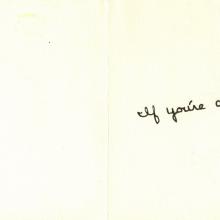 If you're